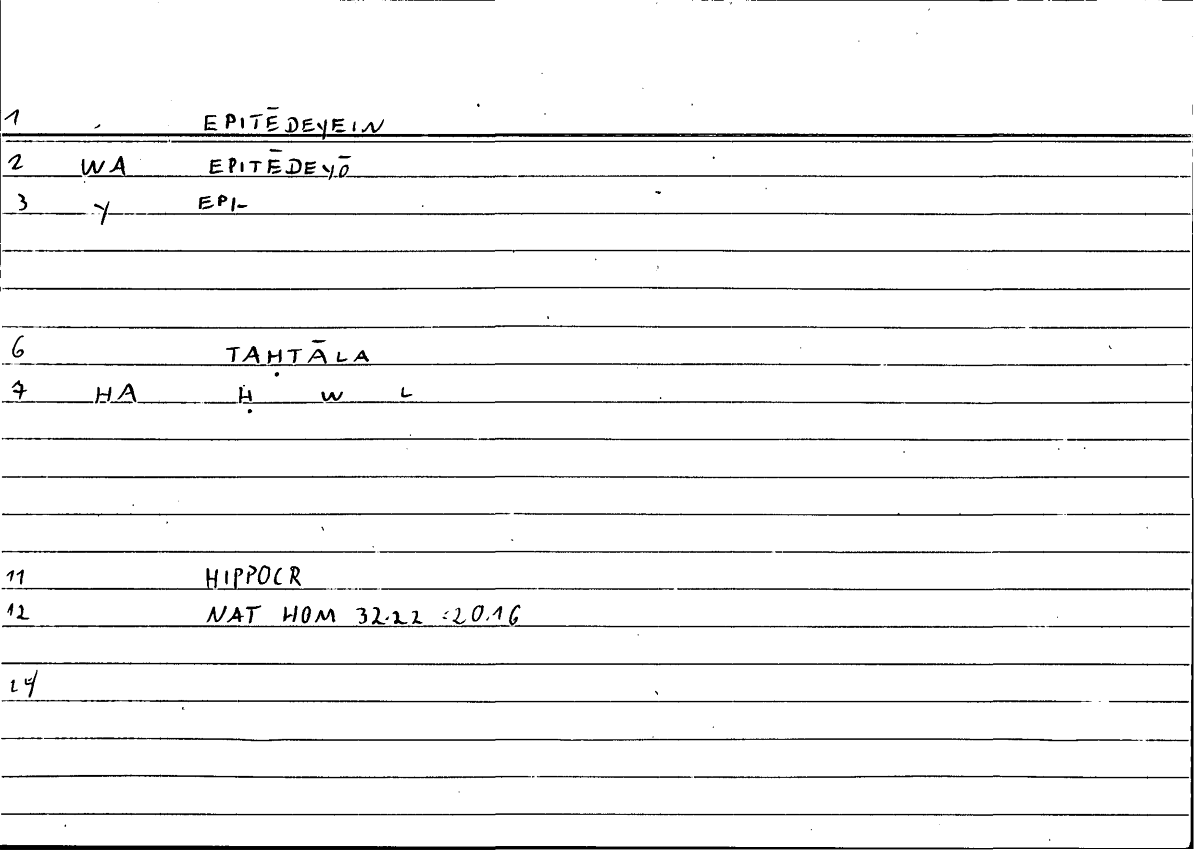 1 EPITĒDEYEIN
2 WA EPITĒDEYŌ
3 Y EPI-
6 TAḤTĀLA
7 HA Ḥ W L
11 HIPPOCR
12 NAT HOM 32.22 :20.16
24